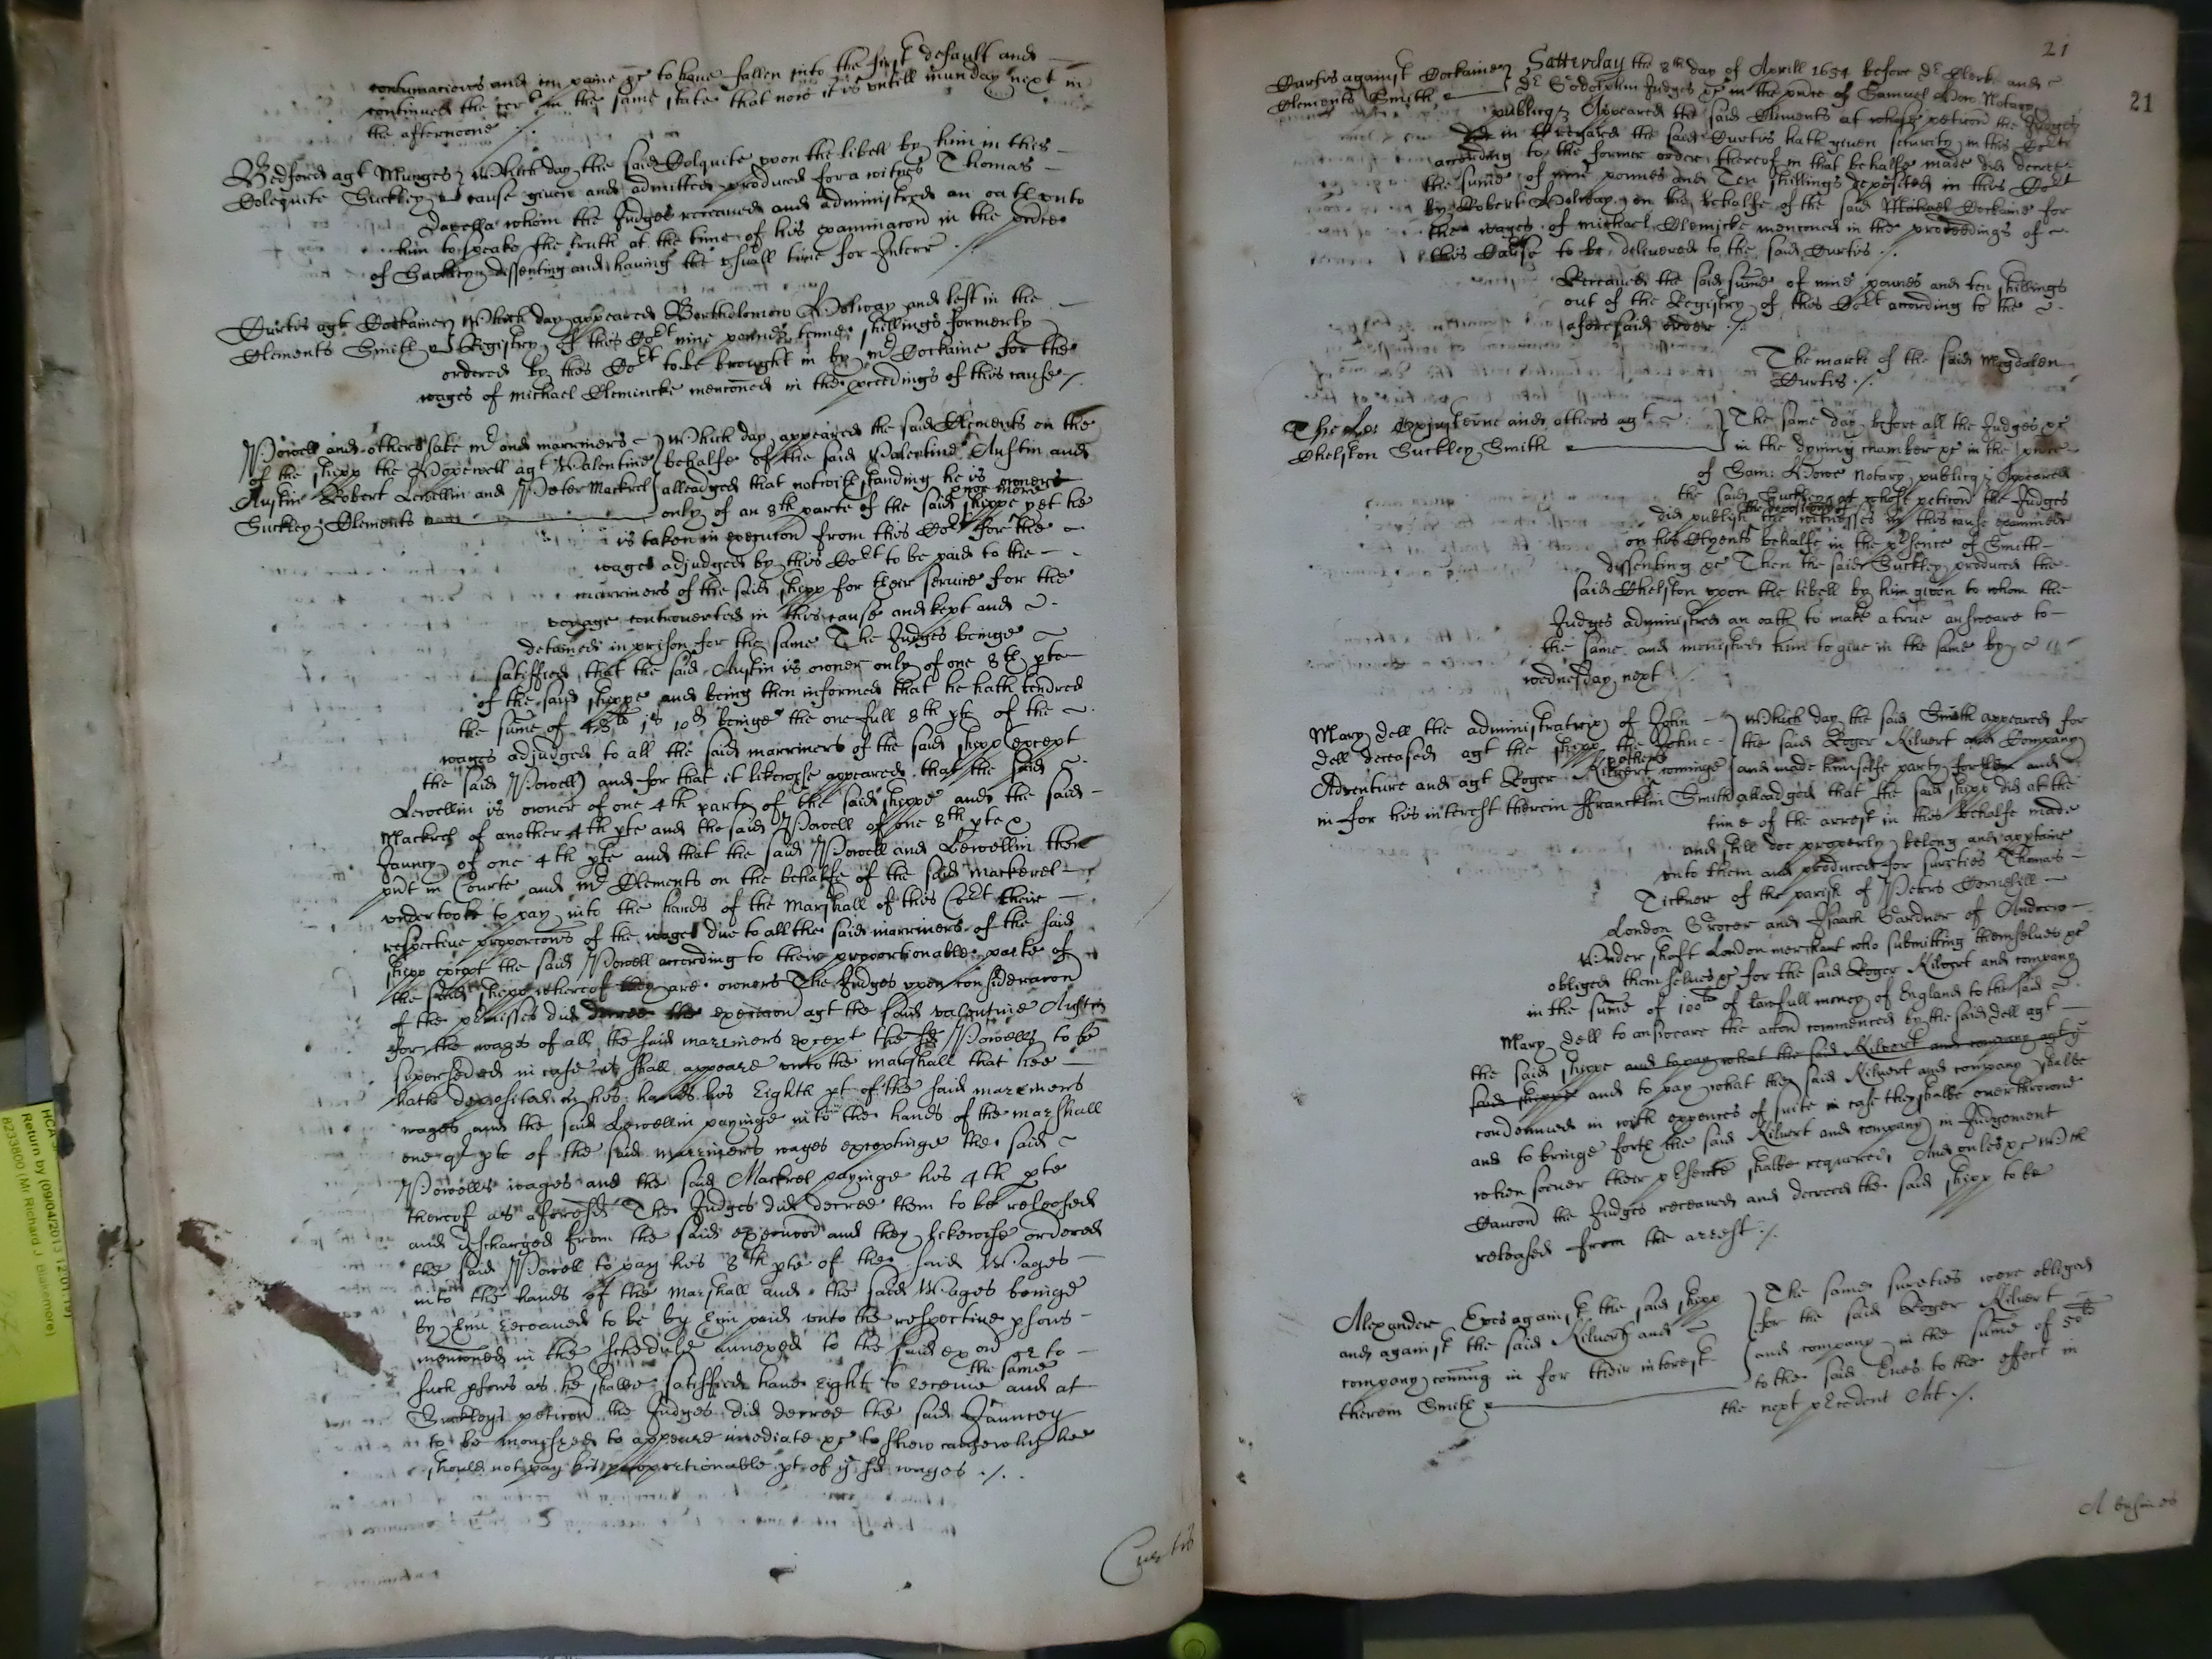 contumacious and in paine &c to have fallen into the first default and
continued the cert in the same state that now it is untill munday next in
the afternoone ./.
Bedford agt Munges
Colequite Suckley
Which day the said Colquite upon the libell by him in this
cause given and admitted produced for a witnes Thomas
whom the Judges received and administred an oath unto
him to speake the truth at the time of his examinacon in the pnce
of Suckley dissenting and having the usuall time for Interr ./.
Curtis agt Cockaine
Clements Smith
Which day appeared Bartholomew Holway and left in the
Registry of this Cort nine pounds tenne shillings formerly
ordered by this Cort to be brought in by mr Cockaine for the
wages of Michael Clemincke menconed in the pceedings of this cause ./.
Powell and others late mr and marriners
of the shipp the Hopewell agt Valentine
Austin Robert Lewellin and Peter Mackrel
Suckley Clements
Which day appeared the said Clements on the
behalfe of the said Valentine Austin and
alleadged that notwithstanding he is owner
only of an 8th parte of the said shippe & noe more yet he
is taken in execucon from this Cort for the
wages adjudged by this Cort to be paid to the
marriners of the said shipp for their service for the
voyage controverted in this cause and kept and
detained in prison for the same The Judges beinge
satisfied that the said Austin is owner only of one 8th pte
of the said shippe and being then informed that he hath tendred
the sume of 48li 1s 10d beinge the one full 8th pte of the
wages adjudged to all the said marriners of the said shipp (except
the said Powell) and for that it likewise appeared that the said
Lewellin is owner of one 4th party of the said shippe and the said
Mackrel of another 4th pte and the said Powell of one 8th pte &
Jauncy of one 4th pte and that the said Powell and Lewellin then
pnt in Courte and mr Clements on the behalfe of the said Mackerel
undertooke to pay into the hands of the Marshall of this Cort their
respective proporcons of the wages due to all the said marriners of the said
shipp except the said Powell according to their proportionable parte of
the said shipp whereof they are owners The Judges upon consideracon
of the pmisses did decree the execucon agt the said valentine Austin
for the wages of all the said marriners except the sd Powells to be
superseded in case it shall appeare unto the marshall that hee
hath deposited in his hands his Eighth pt of the said marriners
wages and the said Lewellin payinge into the hands of the marshall
one 4th pte of the said marriners wages exceptinge the said
Powells wages and the said Mackrel payinge his 4th pte
thereof as aforesd The Judges did decree them to be released
and discharged from the said execucon and they likewise ordered
the said Powell to pay his 8th pte of the said Wages
into the hands of the Marshall and the said Wages beinge
by him received to be by him paid unto the respective psons
menconed in the schedule annexed to the said execon or to
such psons as he shalbe satisfied have right to receive the same and at
Suckleys peticon the Judges did decree the said Jauncey
to be monished to appeare imediate &c to shew cause why hee
should not pay his proportionable pt of ye sd wages ./.
Curtis
21
21
Curtis against Cockaine
Clements Smith
Satterday the 8th day of Aprill 1654 before dr Clerk and
dr Godolphin Judges &c in the pnce of Samuel Howe Notary
publiq Appeared the said Clements at whose peticon the Judges
in regard the said Curtis hath given security in this Cort
according to the former order thereof in that behalfe made did decree
the sume of nine pounds and Ten shillings deposited in this Cort
by Robert Holway on the behalfe of the said Michael Cockaine for
the wages of Michael Clemicke menconed in the proceedings of
this Cause to be delivered to the said Curtis ./.
Received the said sume of nine pounds and ten shillings
out of the Registry of this Cort according to the
aforesaid order ./.
The marke of the said Magdalen
Curtis ./.
and others agt
Chelston Suckley Smith
The same day before all the Judges &c
in the dyning chamber &c in the pnce
of Sam: Howe Notary publiq Appeared
the said Suckley at whose peticon the Judges
did publish the depositions of the witnesses in this cause examined
on his Clyents behalfe in the psence of Smith
dissenting &c Then the said Suckley produced the
said Chelston upon the libell by him given to whom the
Judges administred an oath to make a true answeare to
the same and monished him to give in the same by
wednesday next
Mary Dell the administratrix of John
Dell deceased agt the shipp the John
Adventure and agt Roger Kilvert & others cominge
in for his interest therein Francklin Smith
Which day the said Smith appeared for
the said Roger Kilvert and Company
and made himselfe party for them and
alleadged that the said shipp did at the
time of the arrest in this behalfe made
and still doe properly belong and apptaine
unto them and produced for sureties Thomas
Tickner of the parish of Peters Cornehill
London Grocer and Isaack Gardner of Andrew
Undershaft London merchant who submitting themselves &c
obliged themselves &c for the said Roger Kilvert and company
in the sume of 100li of lawfull money of England to the said
Mary Dell to answeare the accon commenced by the said Dell agt
the said shippe and to pay what the said Kilvert and company agt ye
said shippe and to pay what the said Kilvert and company shalbe
condemned in with expences of suite in case they shalbe overthrowne
and to bringe forth the said Kilvert and company in Judgement
when soever their psence shalbe required And unles &c Wch
Caucon the Judges received and decreed the said shipp to be
released from the arrest ./.
Alexander Eves against the said shipp
and against the said Kilvert and
company coming in for their interest
therein Smith
The same sureties were obliged
for the said Roger Kilvert
and company in the sume of 50li
to the said Eves to the effect in
the next precedent Act ./.